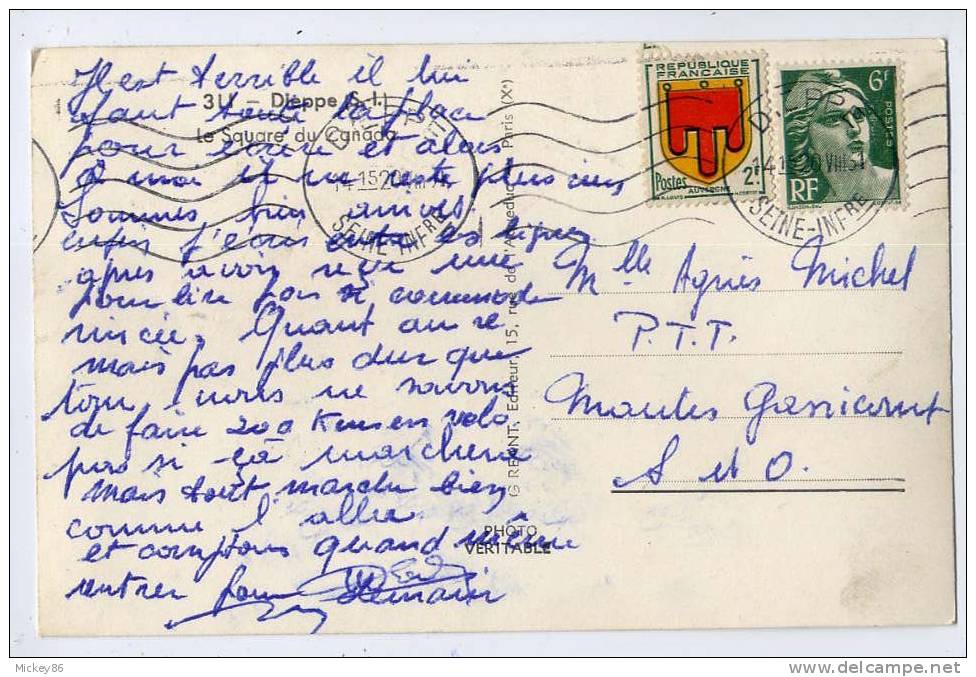 Il est terrible il lui
faut toute la place
3U - Dieppe (S.-I.)
Le Square du Canada
pour écrire et alors
à moi il ne reste plus rien
Sommes bien arrivés.
enfin j'écris ces lignes
après avoir reçu une
rincée. Quant au re
pour lire pas si commode
mais pas plus dur que
tour, nous ne savons
de faire 200 Kms en vélo
pas si çà marchera
mais tout marche bien
comme l'aller
et comptons quand même
rentrer pour demain
RÉPUBLIQUE
FRANÇAISE
2F
Postes
AUVERGNE
6F
POSTES
RF
DIEPPE
1415 20 VIII 51
SEINE-INFRE
Mlle Agnès Michel
P.T.T.
Mantes Gassicourt
S et O.
G. RÉANT, Editeur, 15, rue de l'Aqueduc, Paris (Xe)
PHOTO
VÉRITABLE
Mickey86
www.delcampe.net